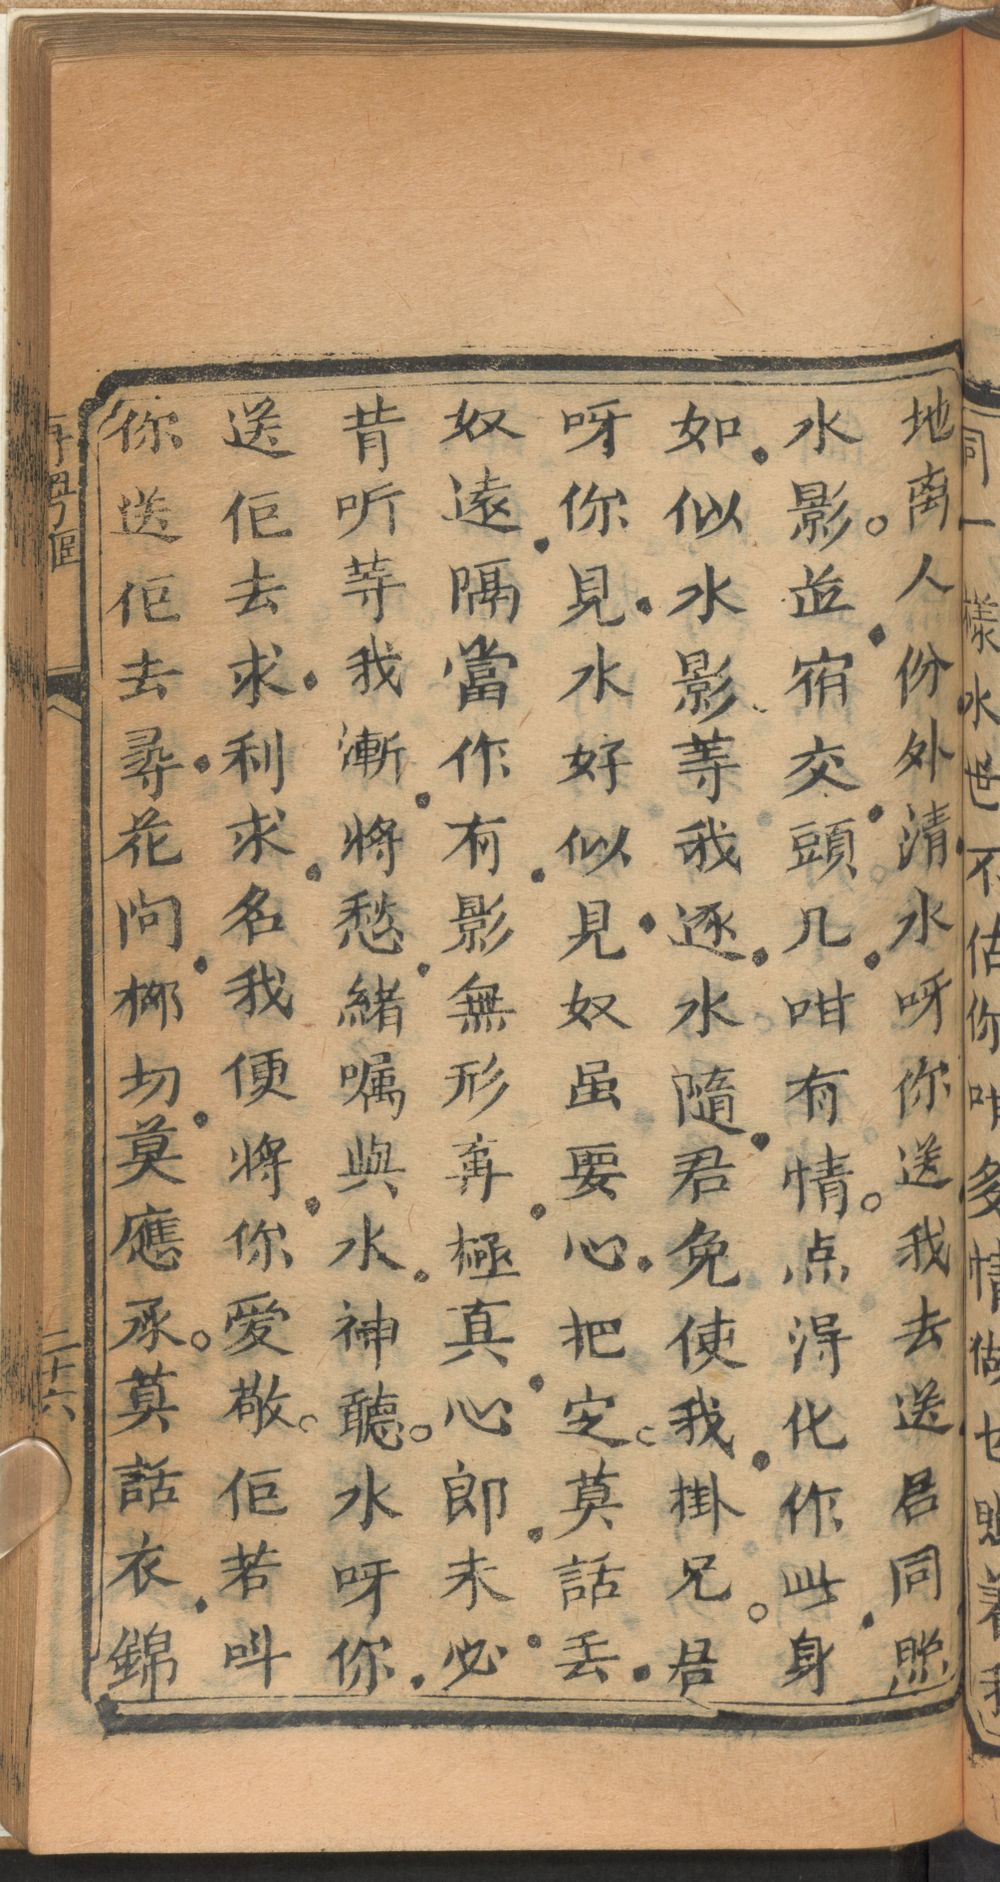 同一樣水也不估你咁多情做乜照着我
地离人份外清水呀你送我去送君同照
水影。並宿交頭几咁有情。点得化作此身
如似水影等我逐水隨君免使我掛兄。君
呀你見水好似見奴虽要心把定。莫話丢
奴遠隔當作有影無形奔極真心郎未必
昔听等我漸將愁緒嘱與水神聽。水呀你
送佢去求利求名我便將你愛敬。佢若叫
你送佢去尋花問柳切莫應承。莫話衣錦
再粤謳
二十六